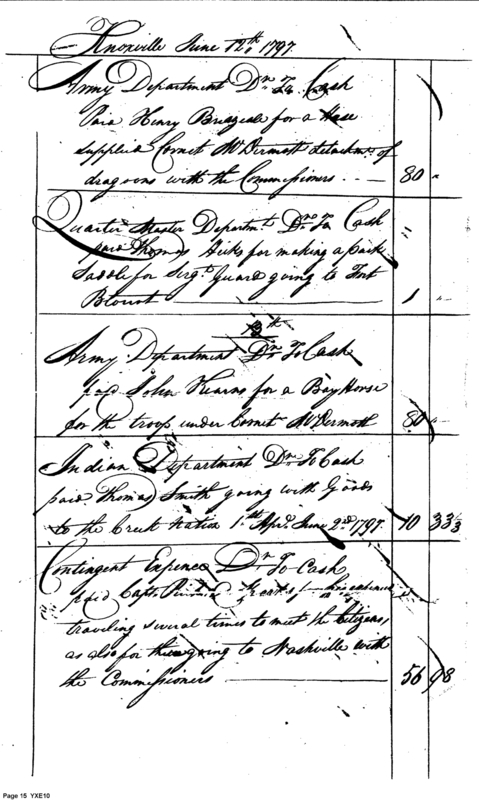 Knoxville June 12th 1797.
Army Department Dr. To Cash
Paid Henry Breazeale for a Hose
supplied Cornet McDermott detachmt. of
dragoons with the Commissioners - - — 80 "
Quarter Master Departmt. Dr. To Cash
paid Thomas Hicks for making a pack
Saddle for Sergt. Guard going to Fort
Blount — 1 "
13th
Army Department Dr. To Cash
paid John Kearns for a Bay Horse
for the troop under Cornet McDermott 80 "
Indian Department Dr. To Cash
paid Thomas Smith going with Goods
to the Creek Nation 1st Apr. June 2nd 1797. 10 33 1/3
Contingent Expences Dr. To Cash
paid Capt.
traveling several times to meet the Citizens,
as also for going to Nashville with
the Commissioners — 56 98
Page 15 YXE10